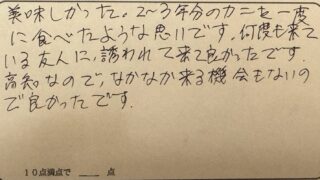 美味しかった。2〜3年分のカニを一度
に食べたような思いです。何度も来て
いる友人に、誘われて来て良かったです。
高知なので、なかなか来る機会もないの
で良かったです。
10点満点で ___ 点